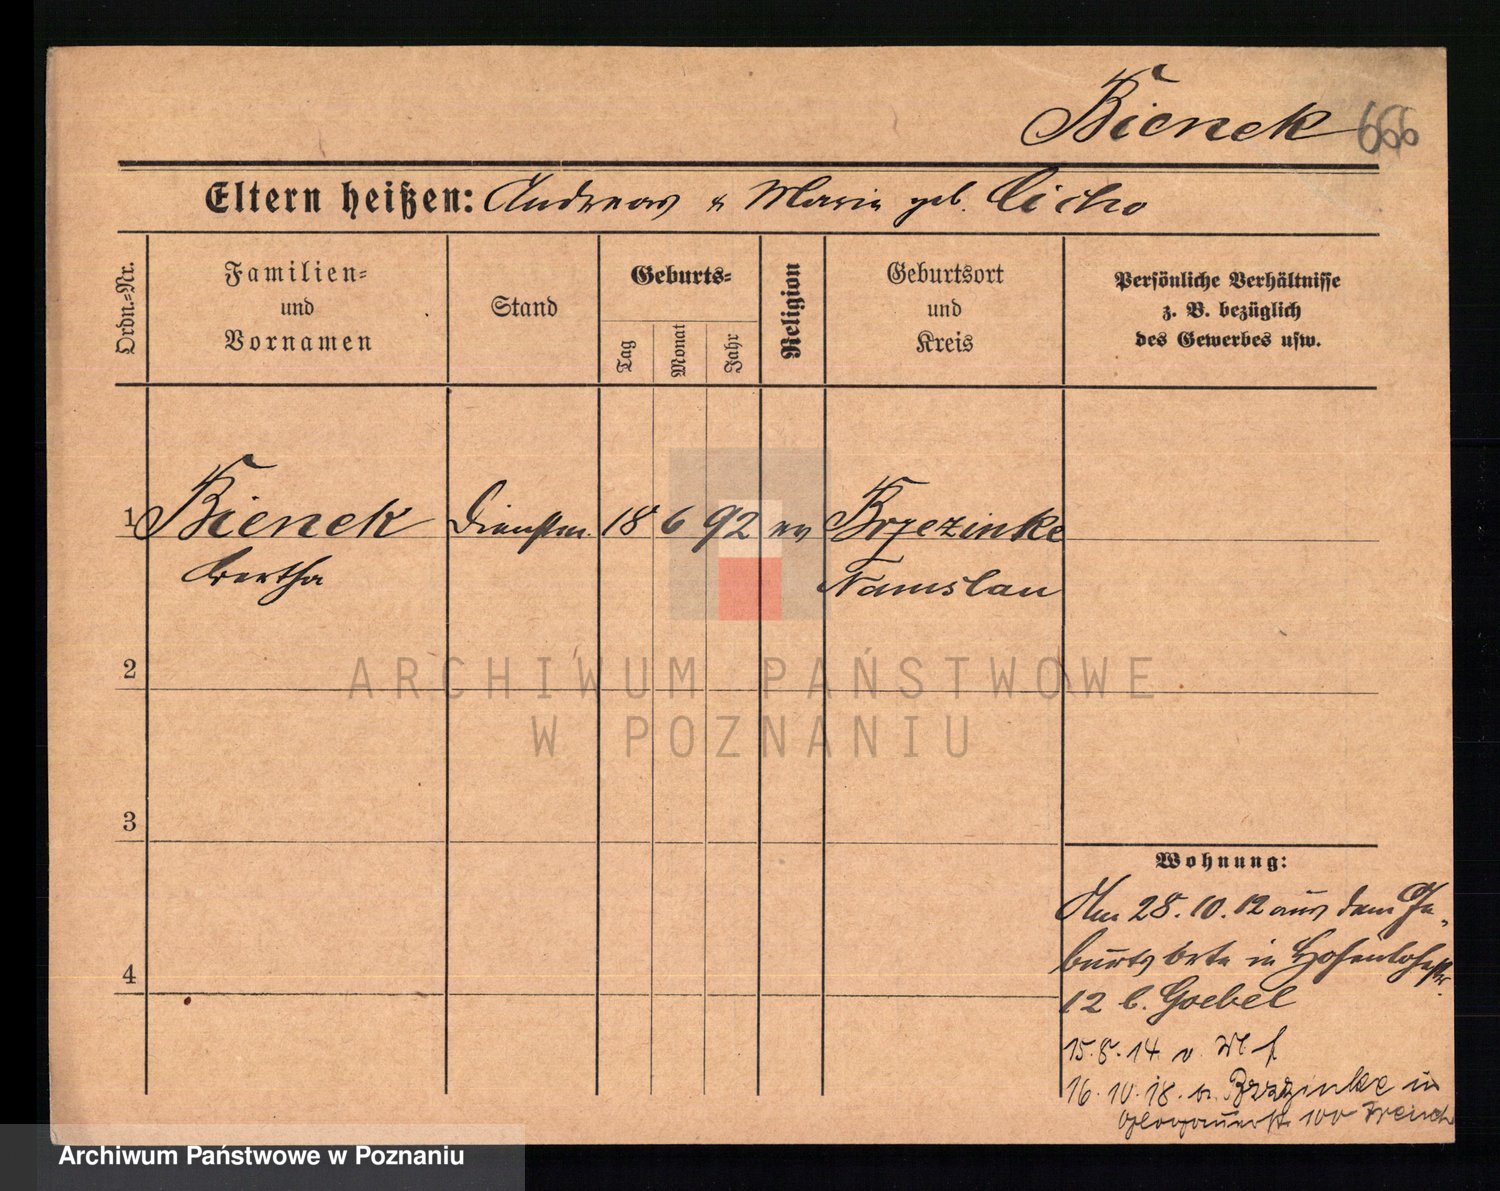 Bienek 666
Eltern heißen: Andreas & Marie geb. Cicho
Ordn.=Nr.
Familien=
und
Vornamen
Stand
Geburts=
Tag
Monat
Jahr
Religion
Geburtsort
und
Kreis
Persönliche Verhältnisse
z. B. bezüglich
des Gewerbes usw.
1 Bienek Dienstm. 18 6 92 ev Brzezinke
Bertha Namslau
2
ARCHIWUM PAŃSTWOWE
W POZNANIU
3
4
Wohnung:
Am 28.10.12 aus dem Ge-
burtsorte in Hohenlohestr.
12 b. Goebel
15.8.14 v.
16.10.18. v. Brzezinke in
Glogauerstr. 100
Archiwum Państwowe w Poznaniu